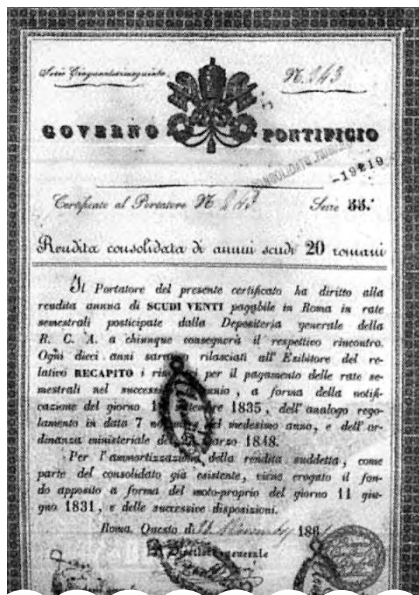 Serie Cinquantacinquesima N. 243
GOVERNO PONTIFICIO
CONSOLIDATO
—19219
Certificato al Portatore N. 243 Serie 55.ª
Rendita consolidata di annui scudi 20 romani
Il Portatore del presente certificato ha diritto alla
rendita annua di SCUDI VENTI pagabile in Roma in rate
semestrali posticipate dalla Depositeria generale della
R. C. A. a chiunque consegnerà il respettivo rincontro.
Ogni dieci anni saranno rilasciati all' Esibitore del re-
lativo RECAPITO i per il pagamento delle rate se-
mestrali nel successivo , a forma della notifi-
cazione del giorno 1835, dell' analogo rego-
lamento in data 7 del medesimo anno, e dell' or-
dinanza ministeriale del marzo 1848.
Per l'ammortizzazione della rendita suddetta, come
parte del consolidato già esistente, viene erogato il fon-
do apposito a forma del moto-proprio del giorno 11 giu-
gno 1831, e delle successive disposizioni.
Roma, Questo dì 186
Il Direttore generale